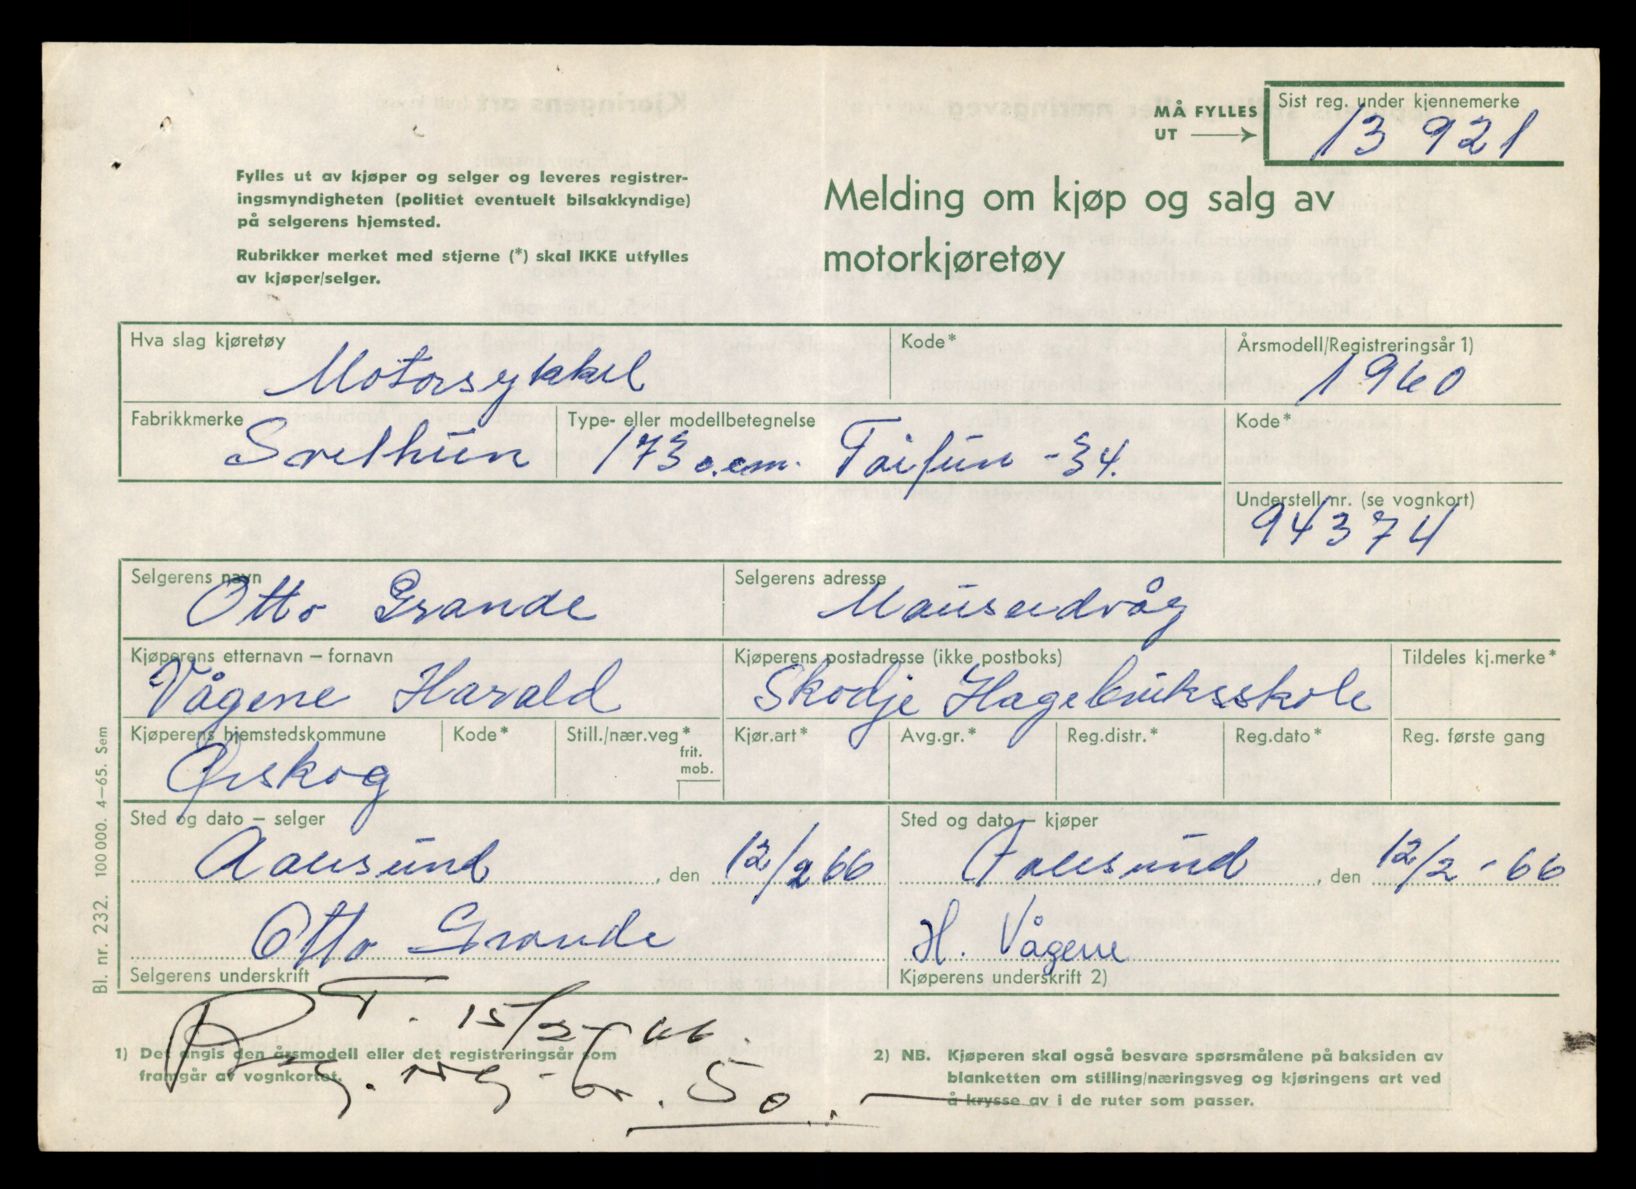 MÅ FYLLES UT
Sist reg. under kjennemerke
13 921
Fylles ut av kjøper og selger og leveres registrer-
ingsmyndigheten (politiet eventuelt bilsakkyndige)
på selgerens hjemsted.
Rubrikker merket med stjerne (*) skal IKKE utfylles
av kjøper/selger.
Melding om kjøp og salg av
motorkjøretøy
Hva slag kjøretøy
Motorsykkel
Kode*
Årsmodell/Registreringsår 1)
1960
Fabrikkmerke
Svelhun
Type- eller modellbetegnelse
173 c.cm. Taifun -34.
Kode*
Understell nr. (se vognkort)
94374
Selgerens navn
Otto Grande
Selgerens adresse
Mauseidvåg
Kjøperens etternavn – fornavn
Vågene Harald
Kjøperens postadresse (ikke postboks)
Skodje Hagebruksskole
Tildeles kj.merke*
Kjøperens hjemstedskommune
Ørskog
Kode*
Still./nær.veg*
frit.
mob.
Kjør.art*
Avg.gr.*
Reg.distr.*
Reg.dato*
Reg. første gang
Sted og dato – selger
Aalesund, den 12/2 66
Sted og dato – kjøper
Aalesund, den 12/2 - 66
Otto Grande
Selgerens underskrift
H. Vågene
Kjøperens underskrift 2)
T. 15/2-66.
50.
1) Det angis den årsmodell eller det registreringsår som
framgår av vognkortet.
2) NB. Kjøperen skal også besvare spørsmålene på baksiden av
blanketten om stilling/næringsveg og kjøringens art ved
å krysse av i de ruter som passer.
Bl. nr. 232. 100 000. 4–65. Sem